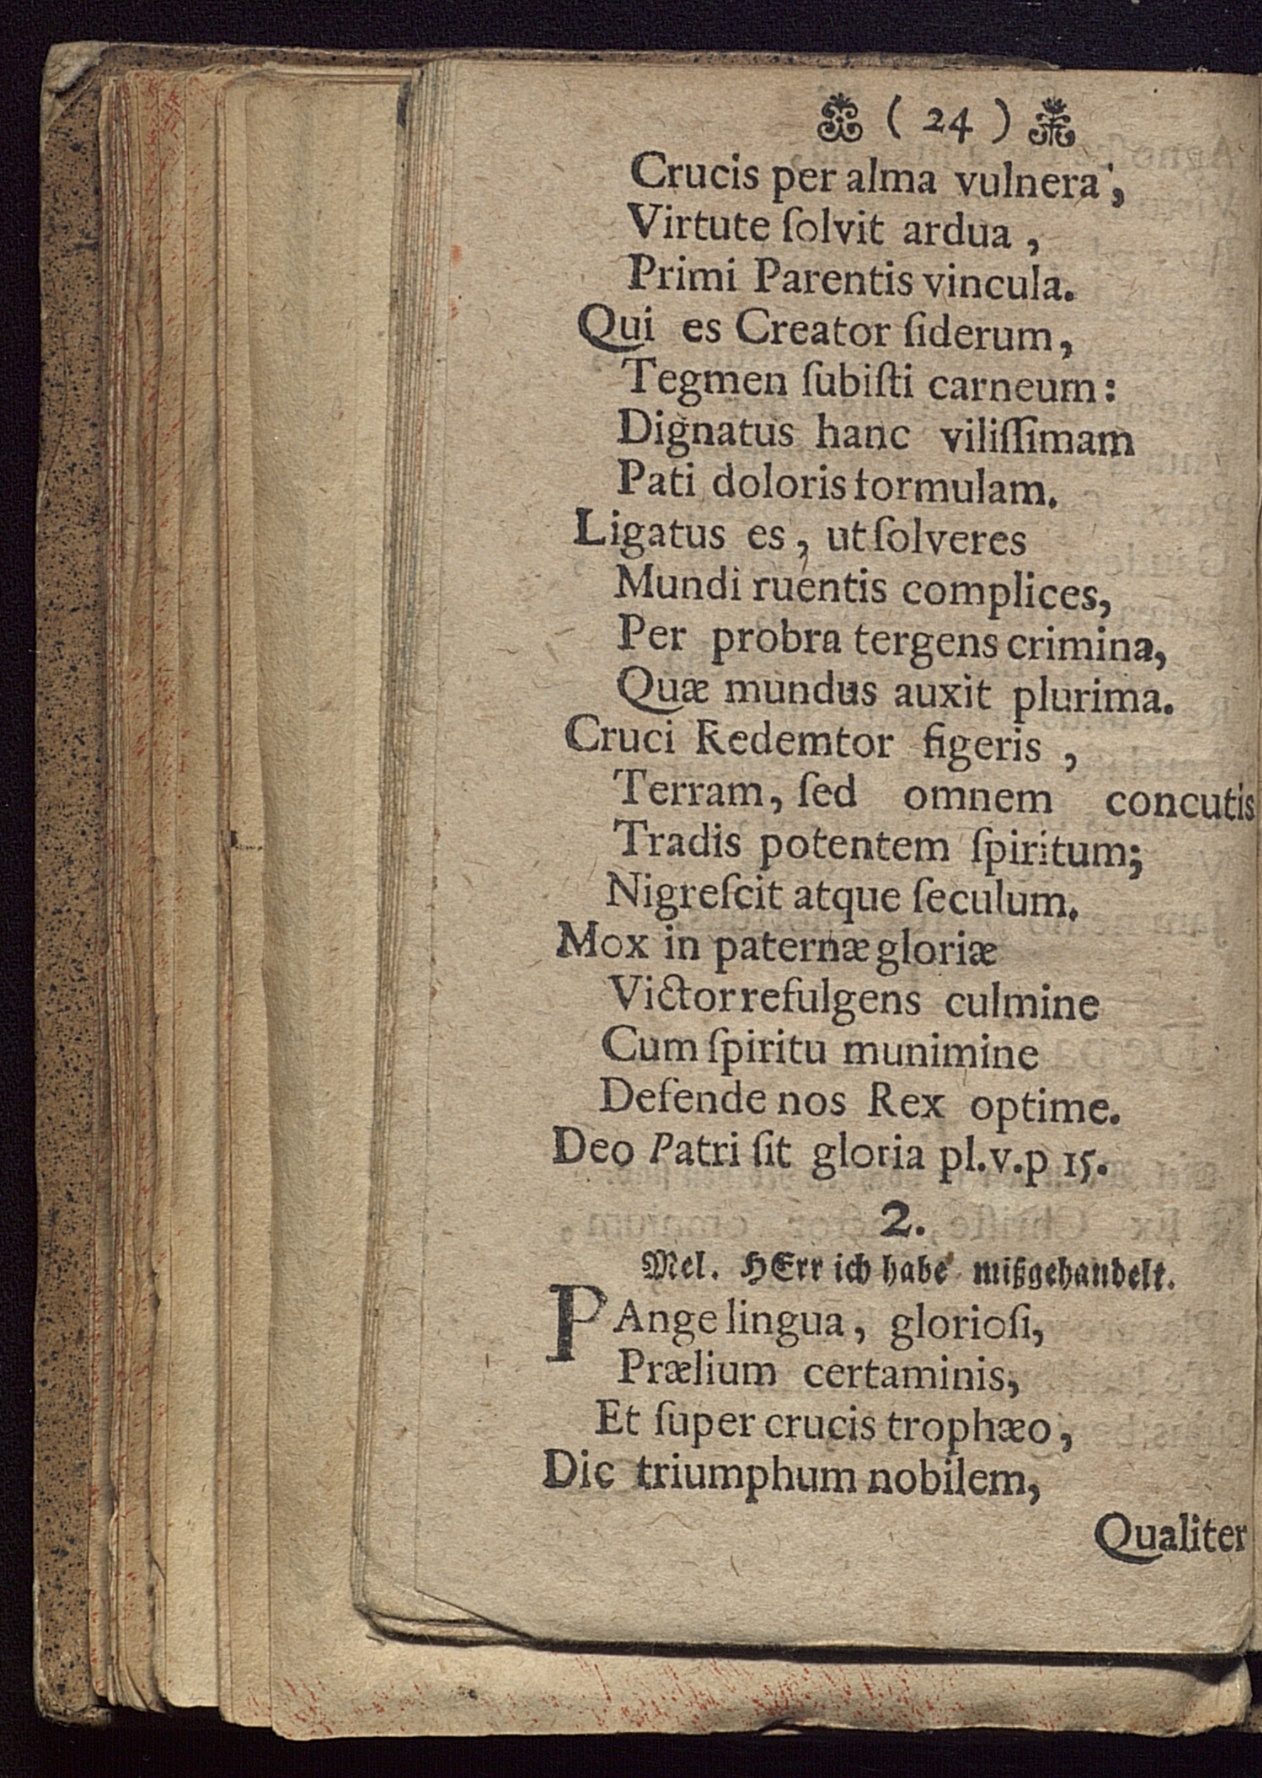 ( 24 )
Crucis per alma vulnera,
Virtute ſolvit ardua,
Primi Parentis vincula.
Qui es Creator ſiderum,
Tegmen ſubiſti carneum:
Dignatus hanc viliſſimam
Pati doloris formulam.
Ligatus es, ut ſolveres
Mundi ruentis complices,
Per probra tergens crimina,
Quæ mundus auxit plurima.
Cruci Redemtor figeris,
Terram, ſed omnem concutis
Tradis potentem ſpiritum;
Nigreſcit atque ſeculum.
Mox in paternæ gloriæ
Victor refulgens culmine
Cum ſpiritu munimine
Defende nos Rex optime.
Deo Patri ſit gloria pl.v.p 15.
2.
Mel. HErr ich habe mißgehandelt.
PAnge lingua, glorioſi,
Prælium certaminis,
Et ſuper crucis trophæo,
Dic triumphum nobilem,
Qualiter